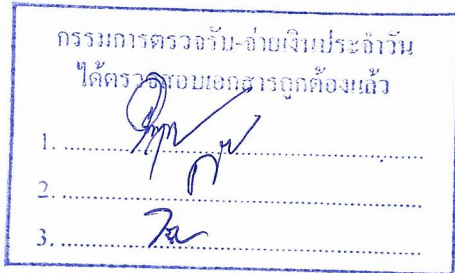 กรรมการตรวจรับ-จ่ายเงินประจำวัน
ได้ตรวจสอบเอกสารถูกต้องแล้ว
1. ....................................................
2. ....................................................
3. ....................................................